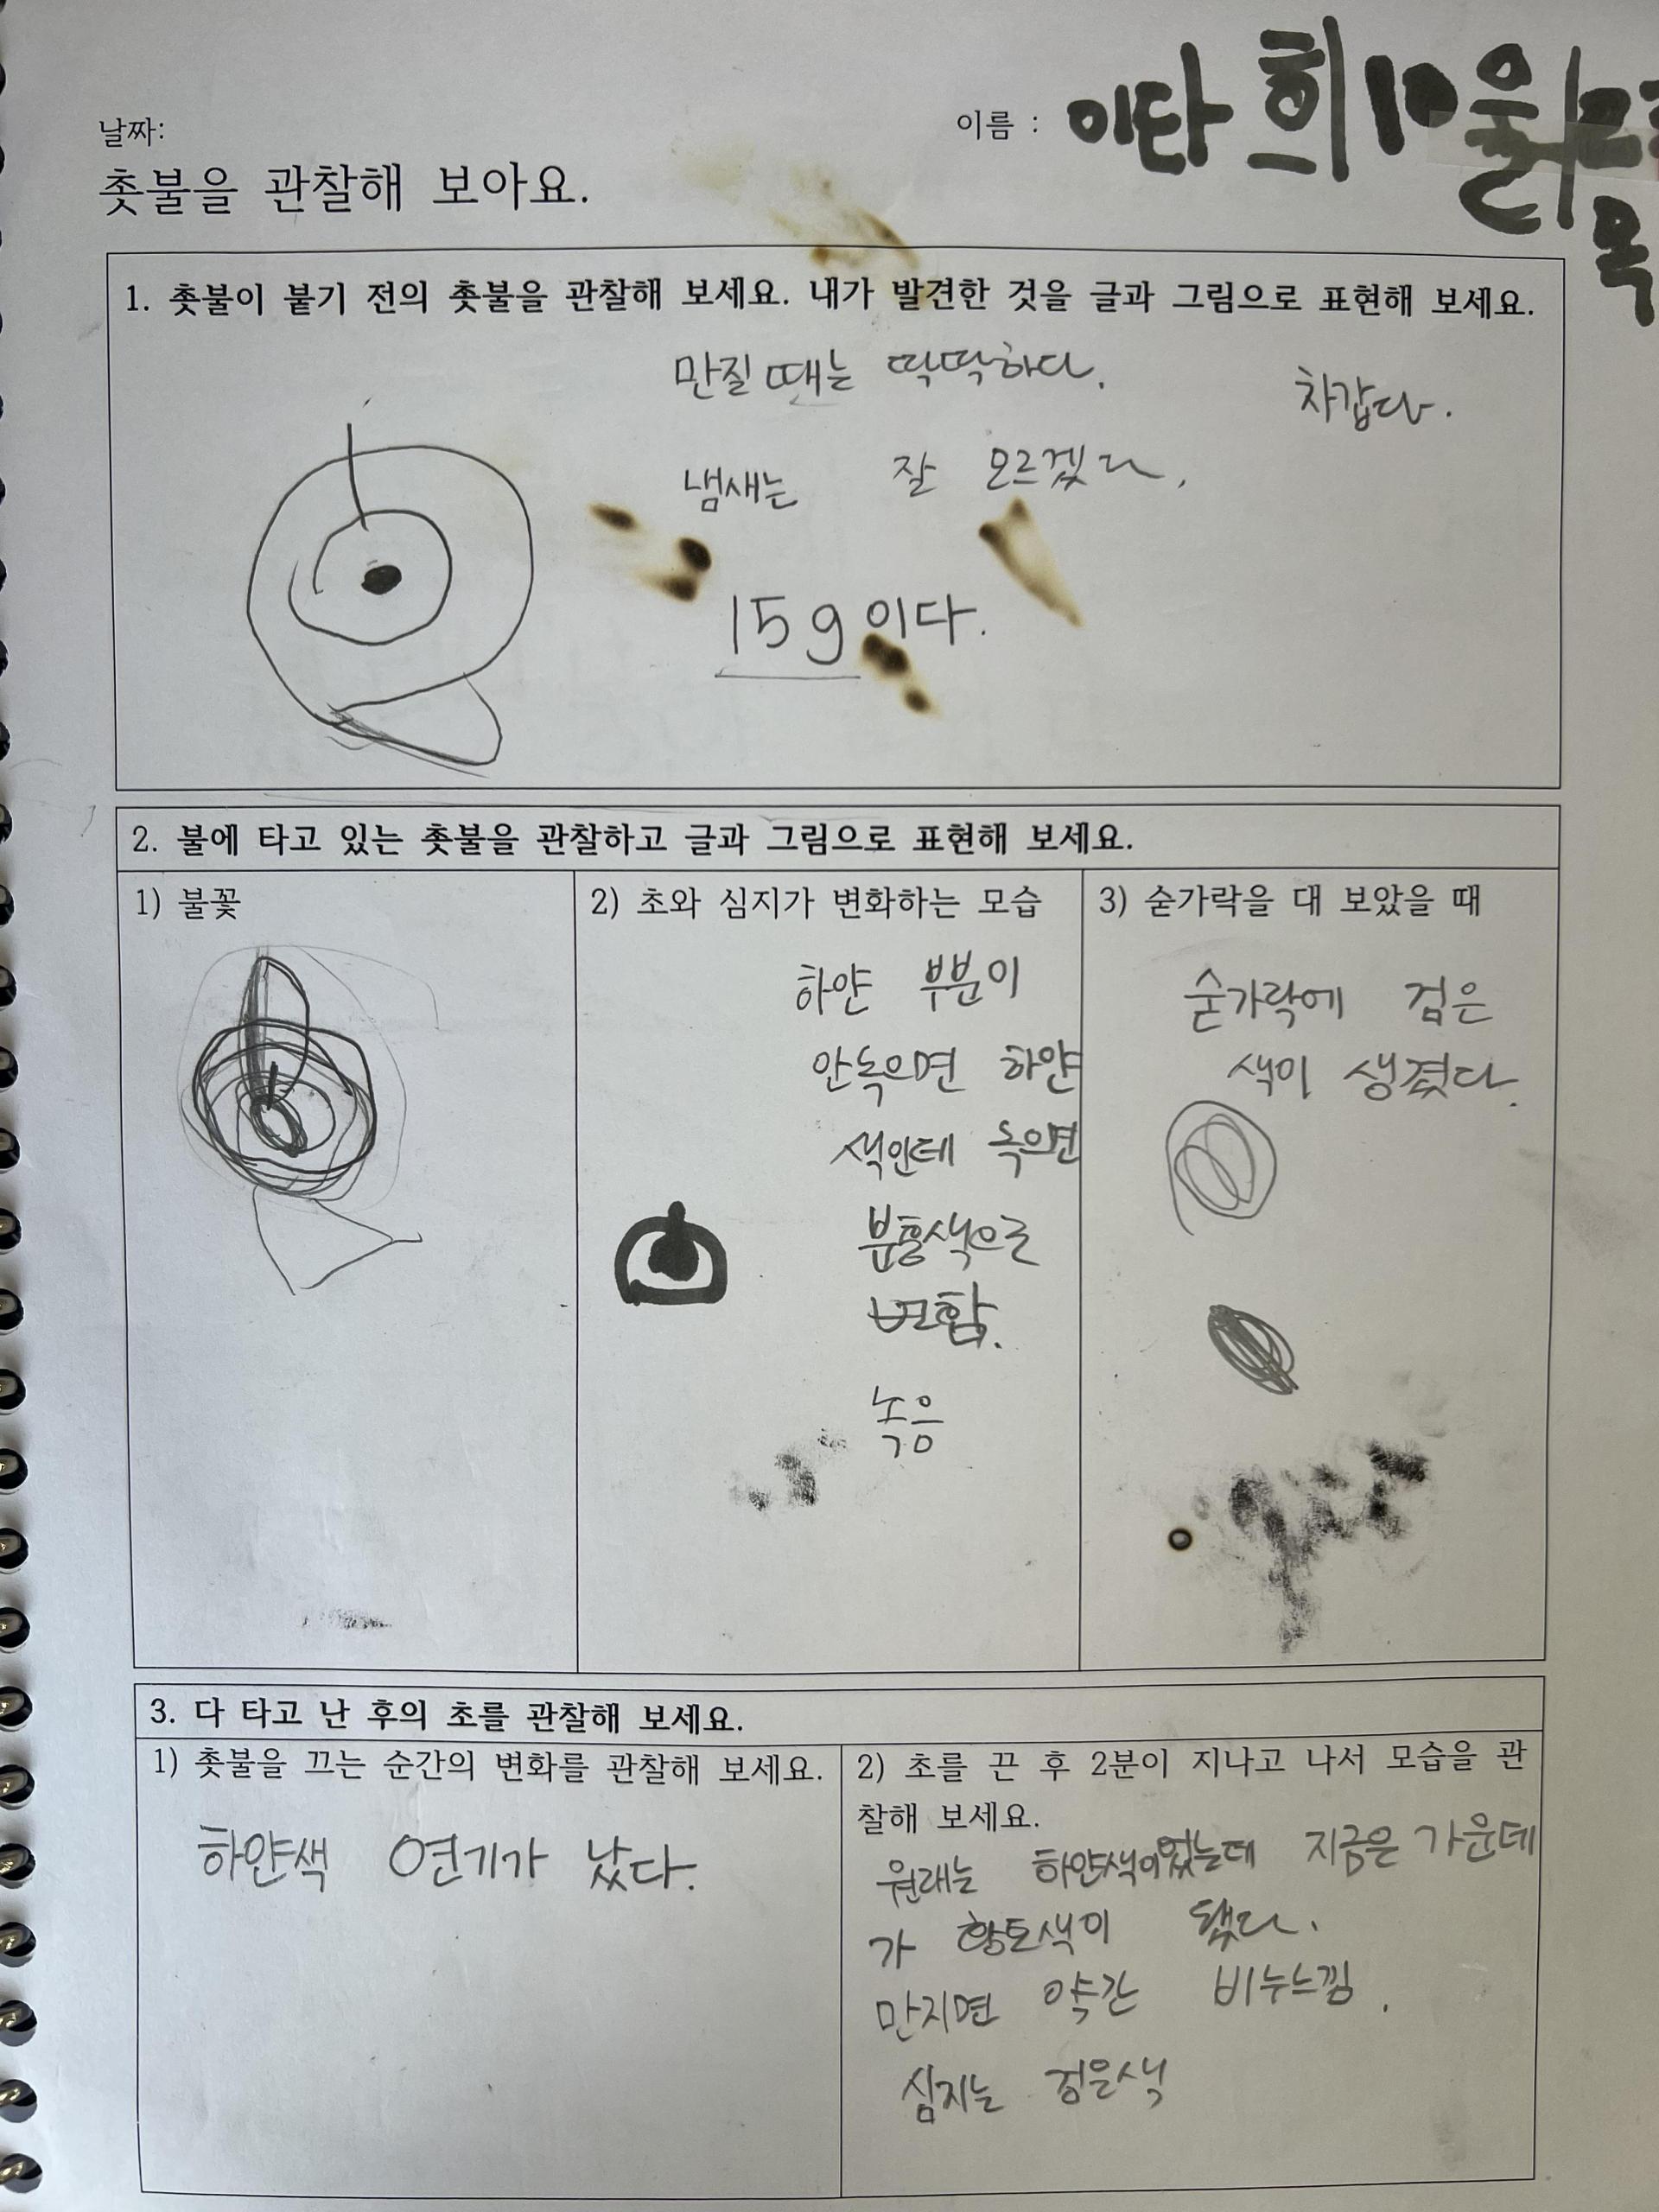 날짜:
이름 : 이탄희 10월
목
촛불을 관찰해 보아요.
1. 촛불이 붙기 전의 촛불을 관찰해 보세요. 내가 발견한 것을 글과 그림으로 표현해 보세요.
만질 때는 딱딱하다.
차갑다.
냄새는 잘 모르겠다.
15g이다.
2. 불에 타고 있는 촛불을 관찰하고 글과 그림으로 표현해 보세요.
1) 불꽃
2) 초와 심지가 변화하는 모습
하얀 부분이
안녹으면 하얀
색인데 녹으면
분홍색으로
변함.
녹음
3) 숟가락을 대 보았을 때
숟가락에 검은
색이 생겼다.
3. 다 타고 난 후의 초를 관찰해 보세요.
1) 촛불을 끄는 순간의 변화를 관찰해 보세요.
하얀색 연기가 났다.
2) 초를 끈 후 2분이 지나고 나서 모습을 관
찰해 보세요.
원래는 하얀색이었는데 지금은 가운데
가 황토색이 됐다.
만지면 약간 비누느낌.
심지는 검은색